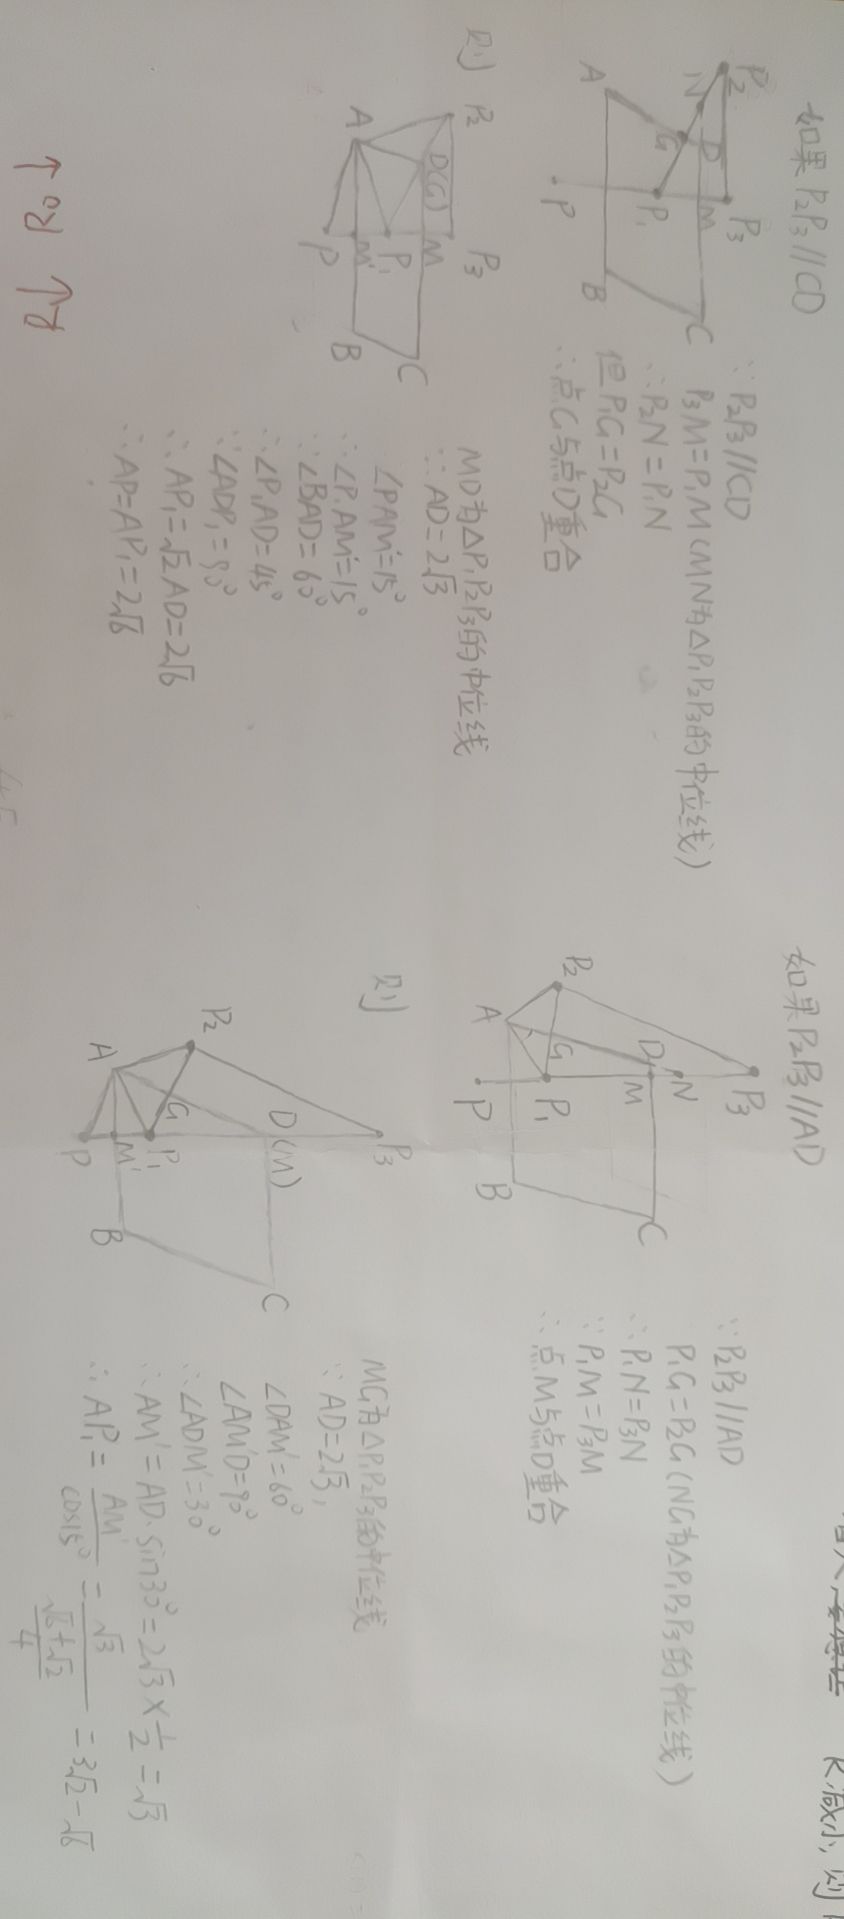 如果P₂P₃//CD
P₂
P₃
N
D
M
C
G
P₁
A
B
P
∵P₂P₃//CD
P₃M=P₁M(MN为△P₁P₂P₃的中位线)
∴P₂N=P₁N
但P₁G=P₂G
∴点G与点D重合
则
P₂
P₃
D(G)
M
C
A
M'
P₁
B
P
MD为△P₁P₂P₃的中位线
∵AD=2√3
∠PAM'=15°
∴∠P₁AM'=15°
∵∠BAD=60°
∴∠P₁AD=45°
∵∠ADP₁=90°
∴AP₁=√2AD=2√6
∴AP=AP₁=2√6
如果P₂P₃//AD
P₃
N
D
M
C
P₂
G
P₁
A
B
P
∵P₂P₃//AD
P₁G=P₂G(NG为△P₁P₂P₃的中位线)
∴P₁N=P₃N
∵P₁M=P₃M
∴点M与点D重合
则
P₃
D(M)
C
P₂
G
P₁
A
M'
B
P
MG为△P₁P₂P₃的中位线
∵AD=2√3,
∠DAM'=60°
∠AM'D=90°
∴∠ADM'=30°
∴AM'=AD·sin30°=2√3×1/2=√3
∴AP₁=AM'/cos15°=√3/((√6+√2)/4)=3√2-√6
R减小,则